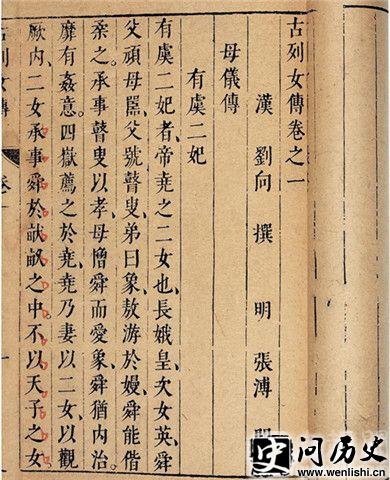 古列女傳卷之一
漢 劉向 撰 明 張溥
母儀傳
有虞二妃
有虞二妃者、帝堯之二女也、長娥皇、次女英、舜
父頑母嚚、父號瞽叟、弟曰象、敖游於嫚、舜能偕
柔之、承事瞽叟以孝、母憎舜而愛象、舜猶內治、
靡有姦意、四嶽薦之於堯、堯乃妻以二女、以觀
厥內、二女承事舜於畎畝之中、不以天子之女
古列女傳 卷一
一
问历史
www.wenlishi.cn